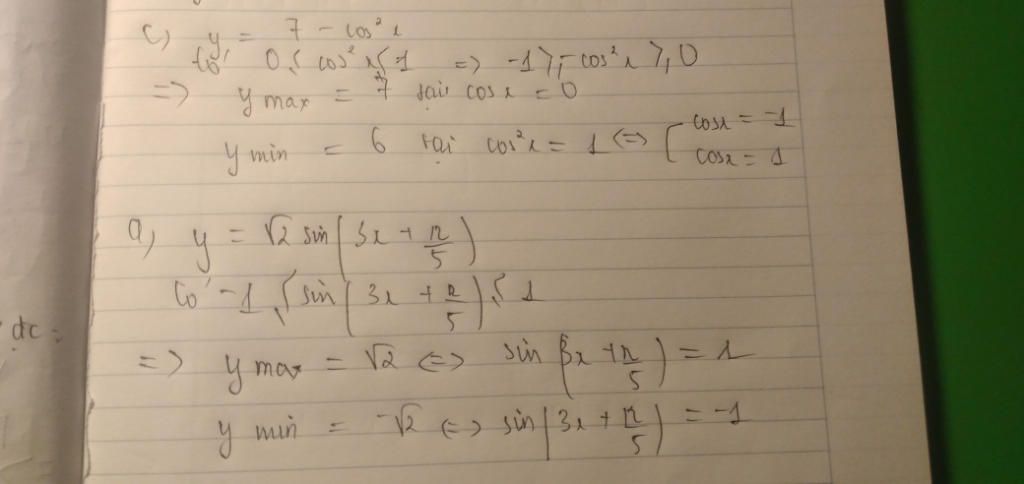 c) y = 7 - cos²x
Có 0 ≤ cos²x ≤ 1 => -1 ≥ -cos²x ≥ 0
=> y max = 7 tại cos x = 0
y min = 6 tại cos²x = 1 <=> [ cosx = -1
cosx = 1
a) y = √2 sin(3x + π/5)
Có -1 ≤ sin(3x + π/5) ≤ 1
đc :
=> y max = √2 <=> sin(3x + π/5) = 1
y min = -√2 <=> sin(3x + π/5) = -1